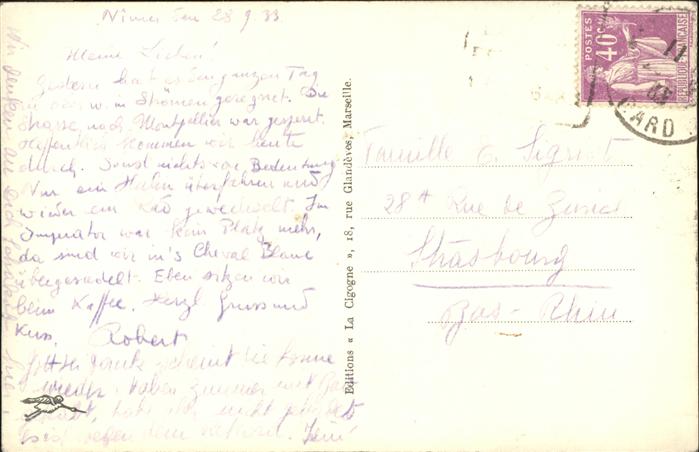 Nimes den 28.9.33
Meine Lieben!
Gestern hat es den ganzen Tag
in Strömen geregnet. Die
Strasse nach Montpellier war gesperrt.
Hoffentlich kommen wir heute
durch. Sonst nichts von Bedeutung.
Nur ein Huhn überfahren und
wieder ein Rad gewechselt. Im
Imperator war kein Platz mehr,
da sind wir in's Cheval Blanc
übergesiedelt. Eben sitzen wir
beim Kaffee. Herzl Gruss und
Kuss. Robert
Gott sei Dank scheint die Sonne
wieder. haben Zimmer mit
nicht
es ist wegen dem
Wir denken an Euch
Editions « La Cigogne », 18, rue Glandèves, Marseille.
POSTES
40c
REPUBLIQUE FRANÇAISE
GARD
Famille E. Sigrist
28 Rue de Zurich
Strasbourg
Bas-Rhin